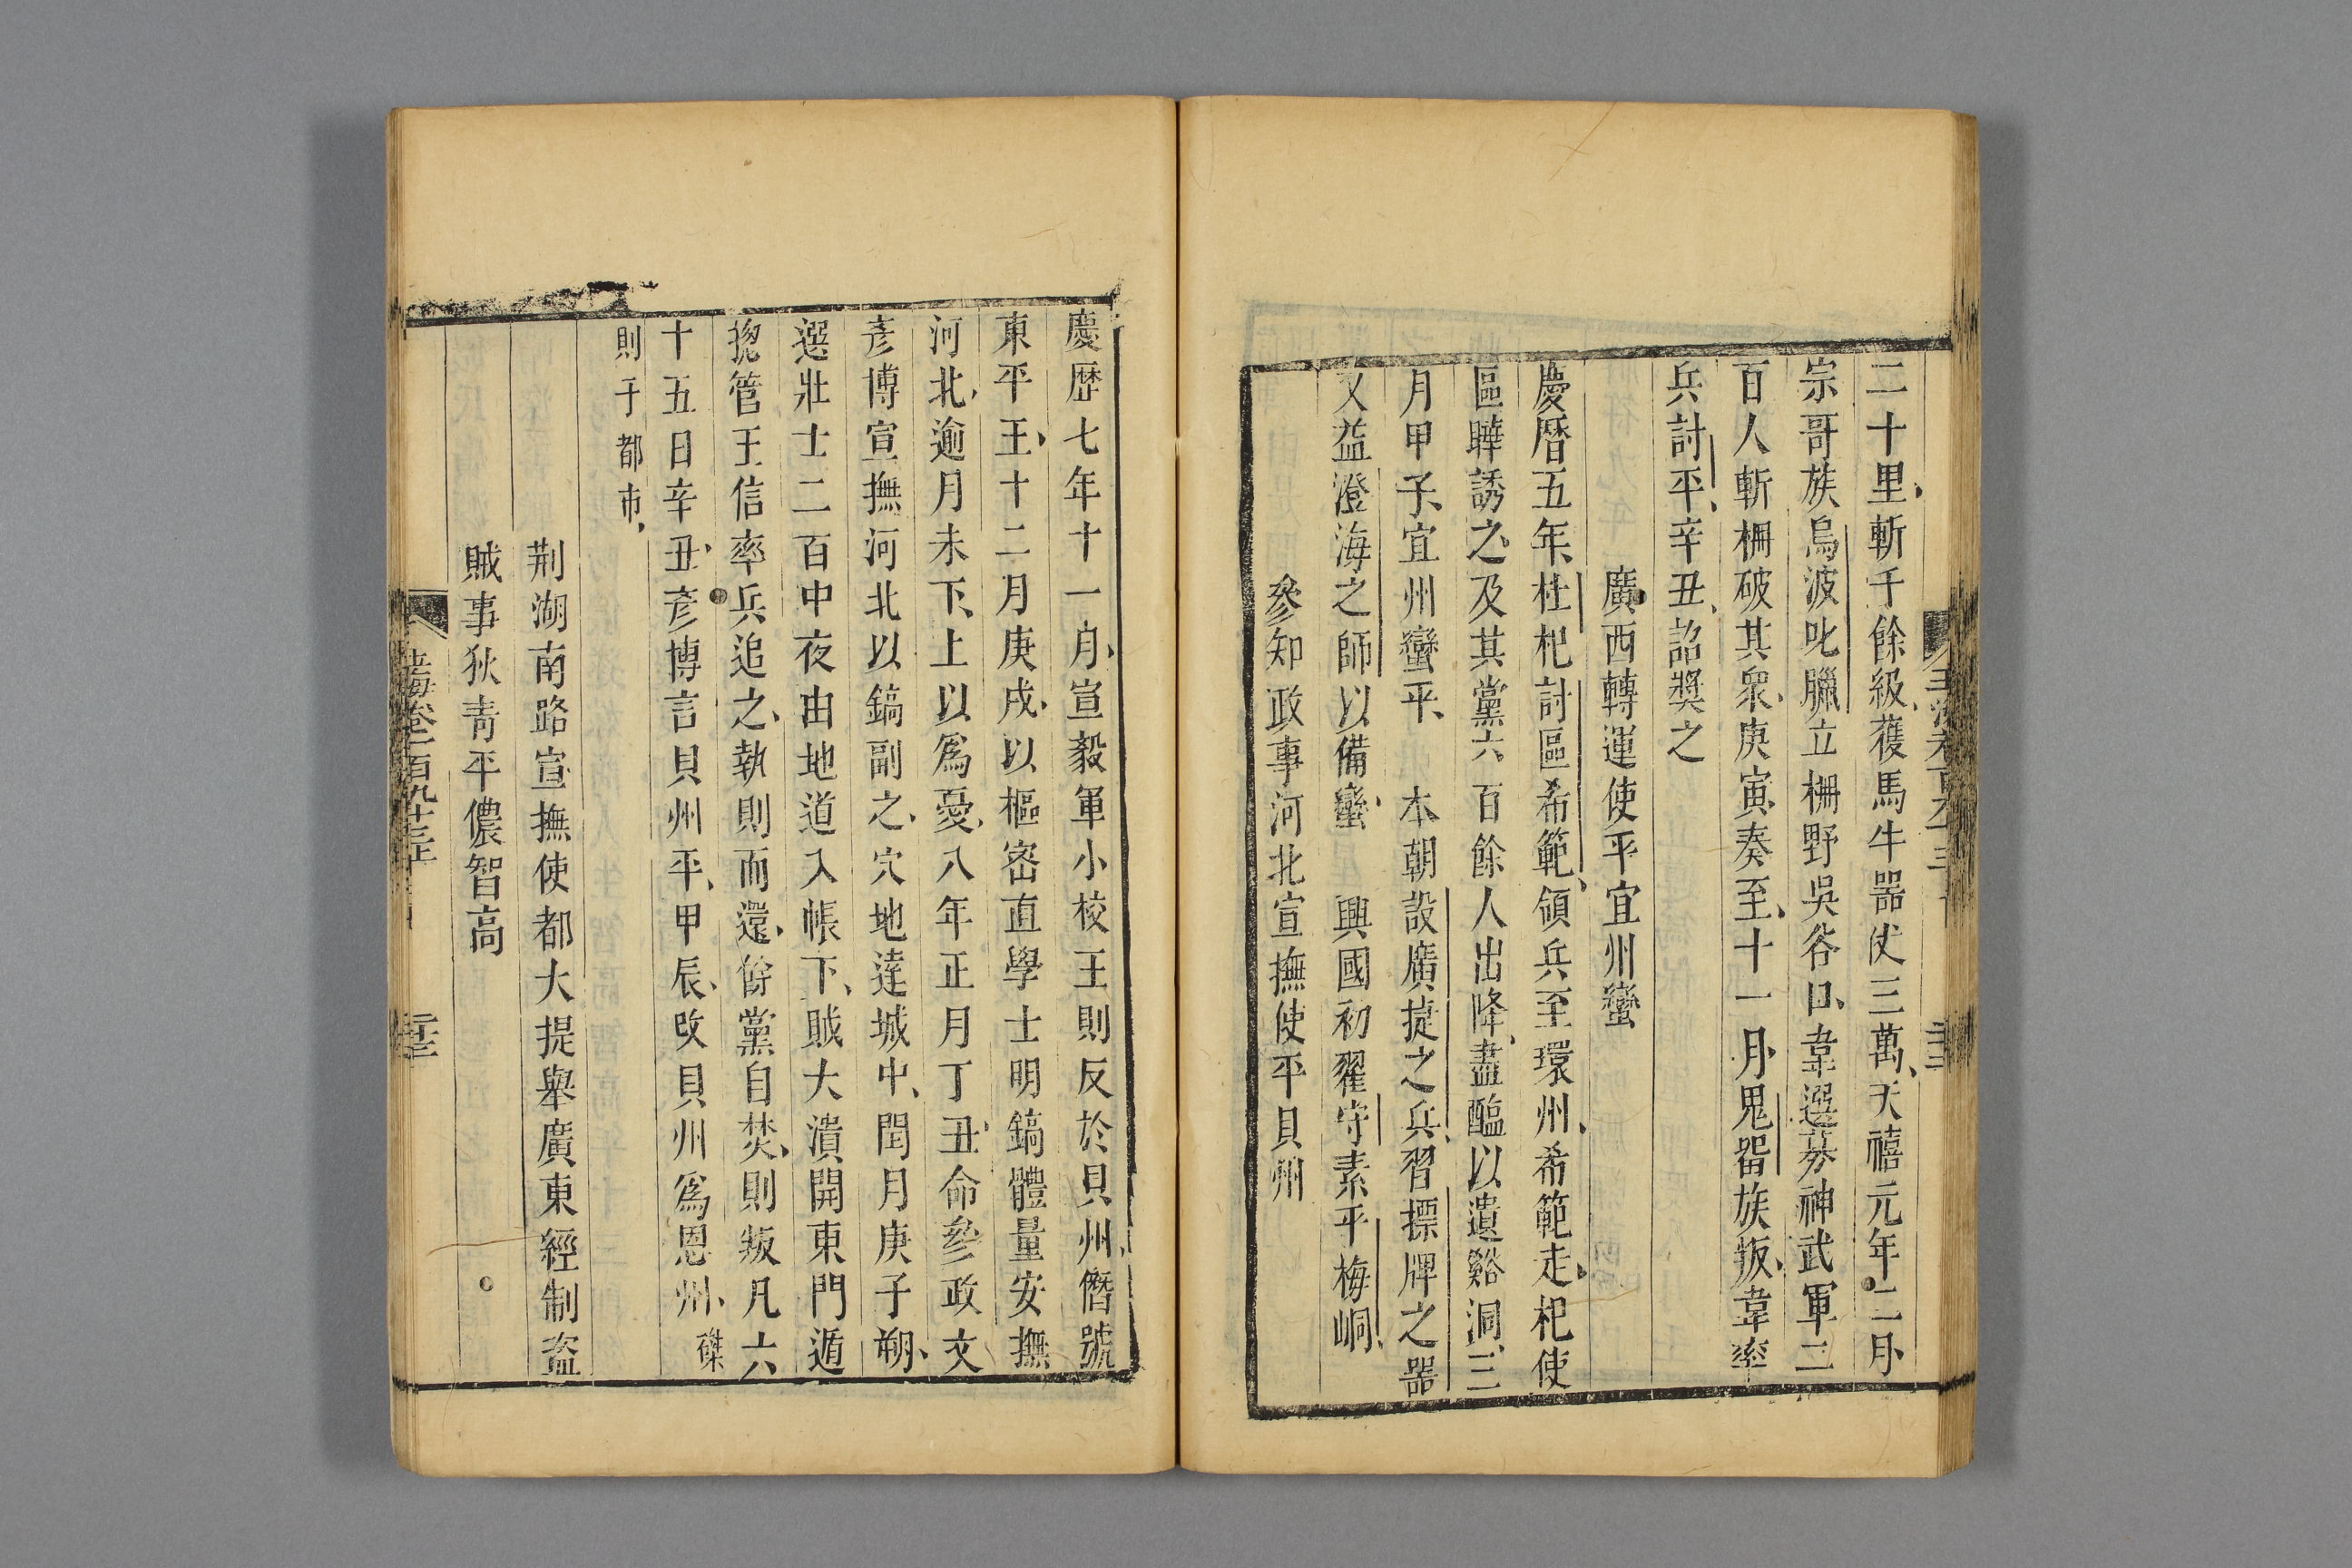 二十里斬千餘級獲馬牛器仗三萬天禧元年二月
宗哥族烏波叱臘立柵野吳谷口韋選募神武軍二
百人斬柵破其衆庚寅奏至十一月鬼留族叛韋率
兵討平辛丑詔獎之
廣西轉運使平宜州蠻
慶曆五年杜杞討區希範領兵至環州希範走杞使
區曄誘之及其黨六百餘人出降盡醢以遺谿洞三
月甲子宜州蠻平 本朝設廣捷之兵習摽牌之器
又益澄海之師以備蠻 興國初翟守素平梅峒
參知政事河北宣撫使平貝州
慶歷七年十一月宣毅軍小校王則反於貝州僭號
東平王十二月庚戌以樞密直學士明鎬體量安撫
河北逾月未下上以爲憂八年正月丁丑命參政文
彥博宣撫河北以鎬副之穴地達城中閏月庚子朔
選壯士二百中夜由地道入帳下賊大潰開東門遁
揔管王信率兵追之執則而還餘黨自焚則叛凡六
十五日辛丑彥博言貝州平甲辰改貝州爲恩州磔
則于都市
荆湖南路宣撫使都大提舉廣東經制盜
賊事狄青平儂智高
玉海卷一百九十三下
二十三